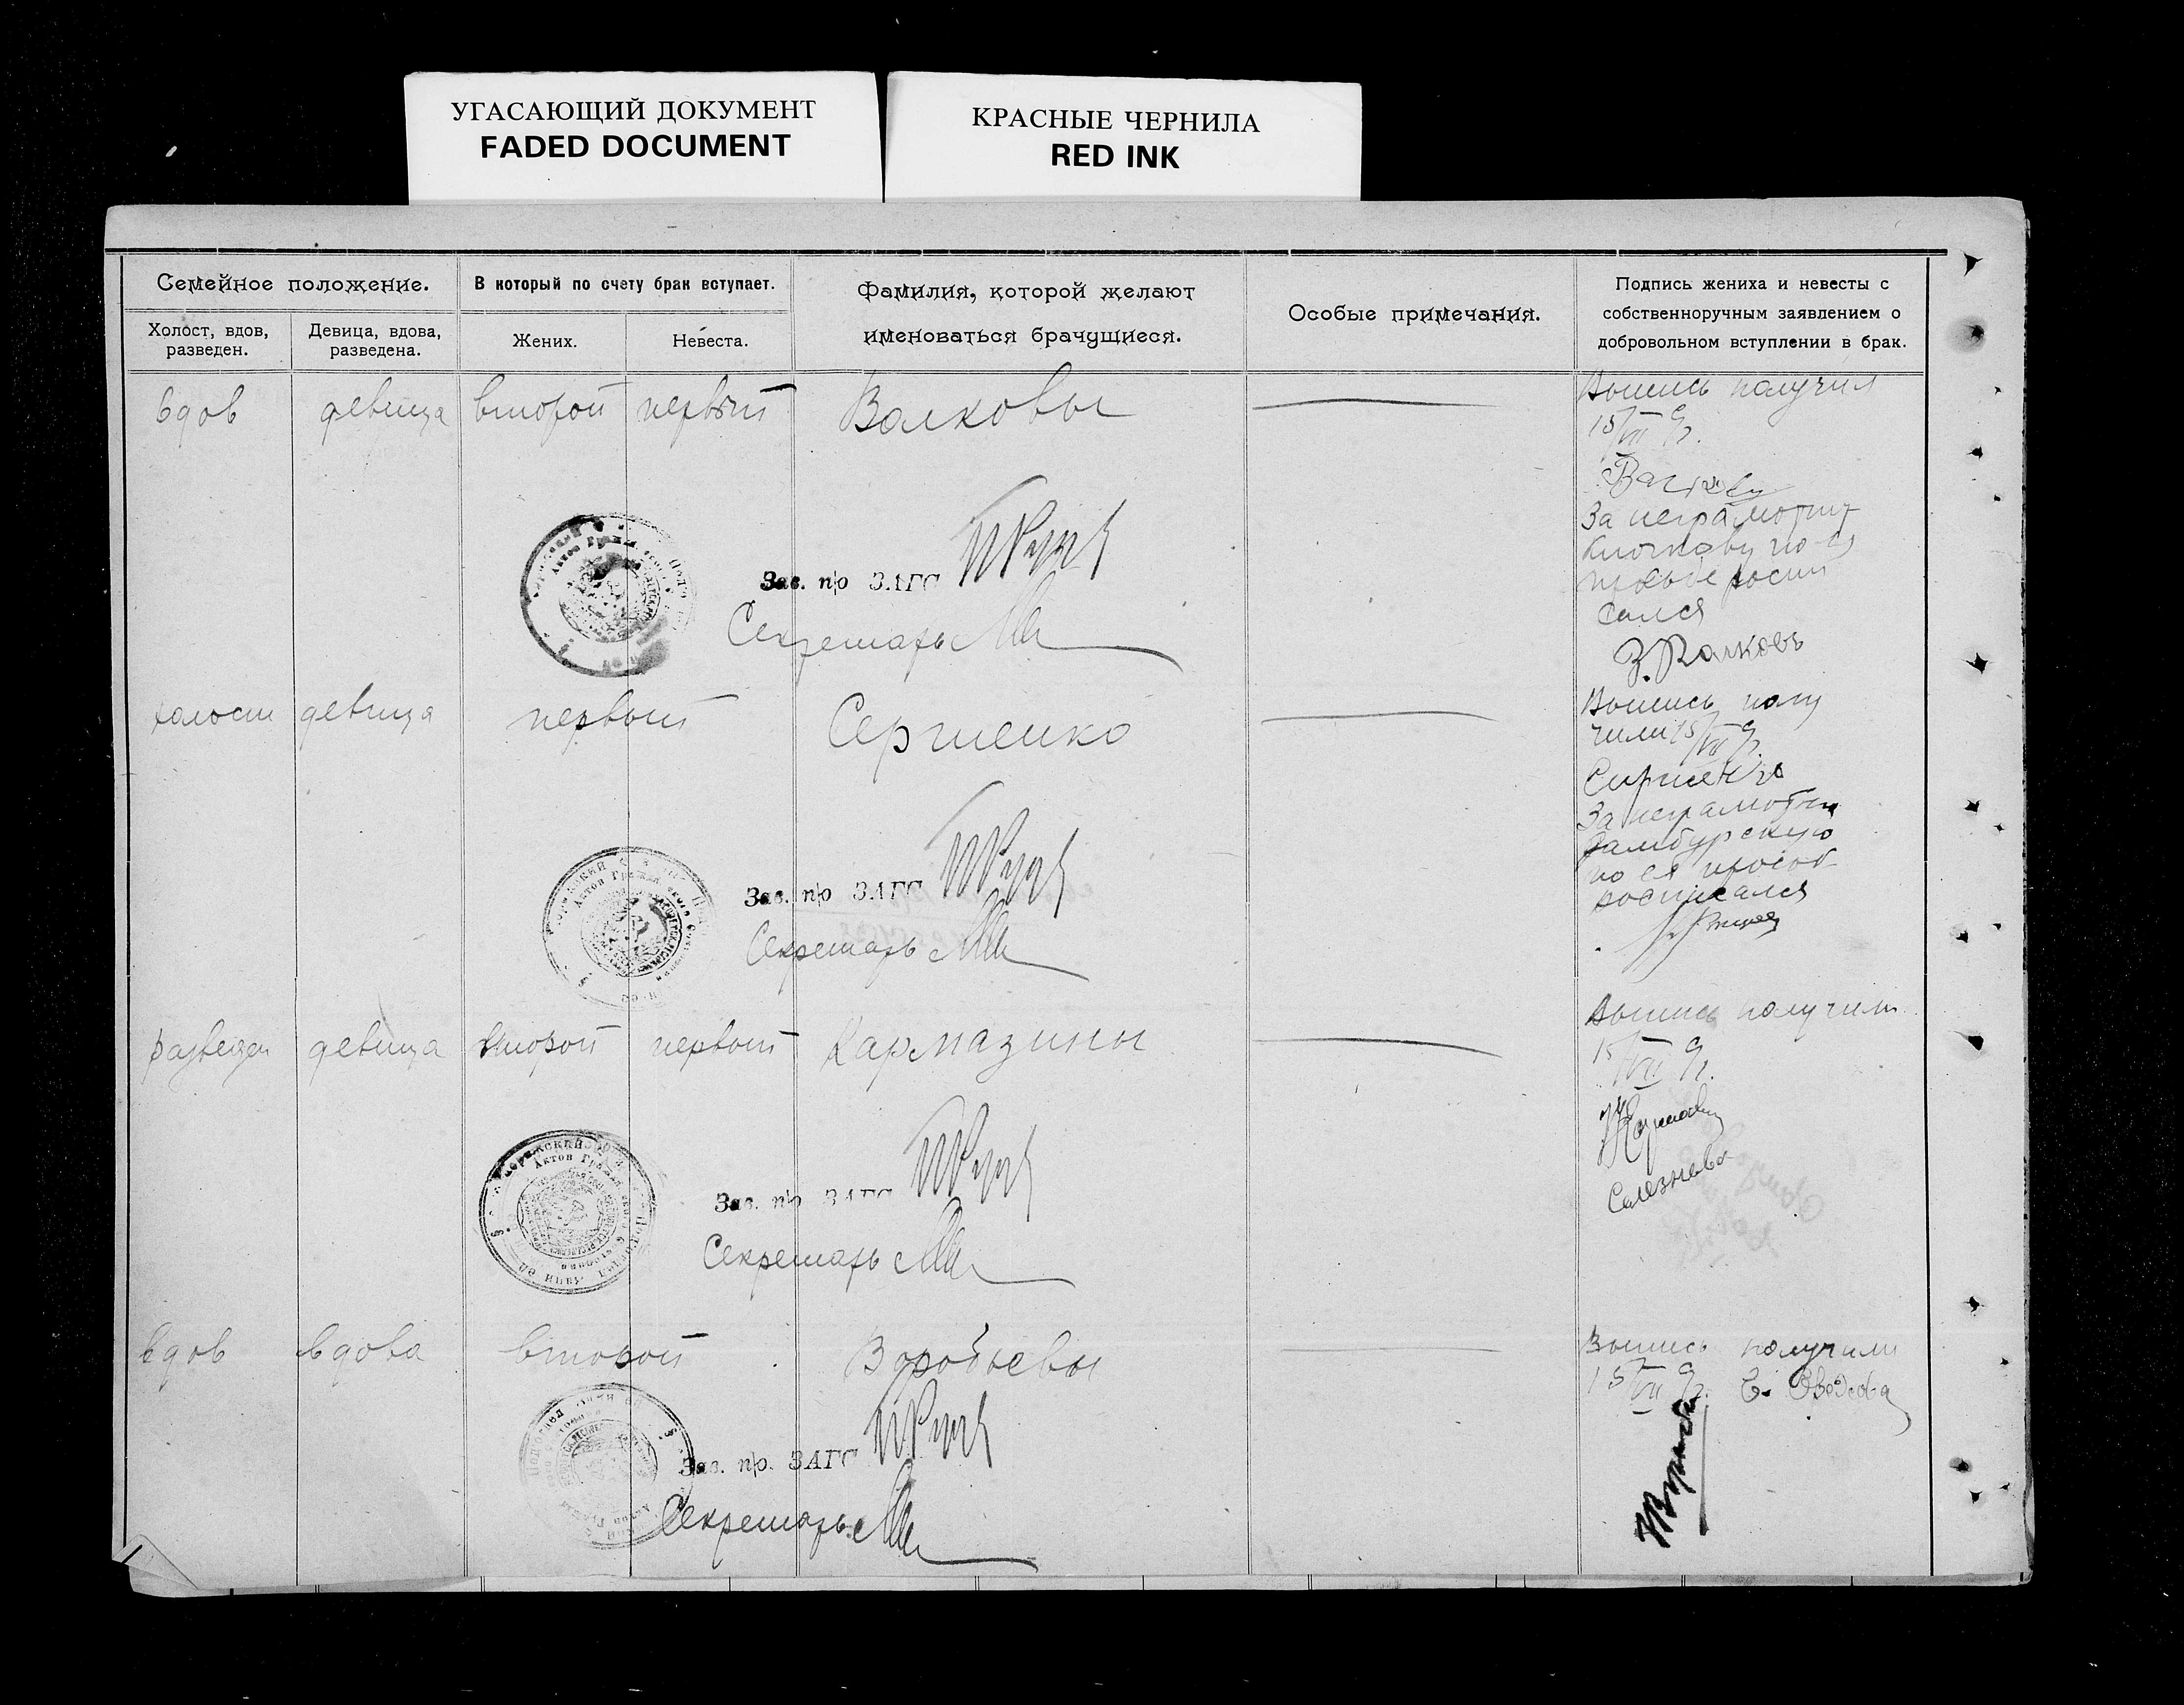 УГАСАЮЩИЙ ДОКУМЕНТ
FADED DOCUMENT
КРАСНЫЕ ЧЕРНИЛА
RED INK
Семейное положение.
Холост, вдов,
разведен.
Девица, вдова,
разведена.
В который по счету брак вступает.
Жених.
Невеста.
Фамилия, которой желают
именоваться брачущиеся.
Особые примечания.
Подпись жениха и невесты с
собственноручным заявлением о
добровольном вступлении в брак.
вдов девица второй первый Волковы
Выпись получил
15/VII
За неграмотную
по ея
просьбе роспи
сался
З. Волковъ
Зав. п/о ЗАГС
Секретарь
холост девица первый Сергиенко
Выпись полу
чили 15/VII
За неграмотную
по ея
росписался
Зав. п/о ЗАГС
Секретарь
разведен девица второй первый Кармазины
Выпись получили
15/VII
Селезнева
Зав. п/о ЗАГС
Секретарь
вдов вдова второй Воробьевы
Выпись получили
15/VII
Зав. п/о ЗАГС
Секретарь